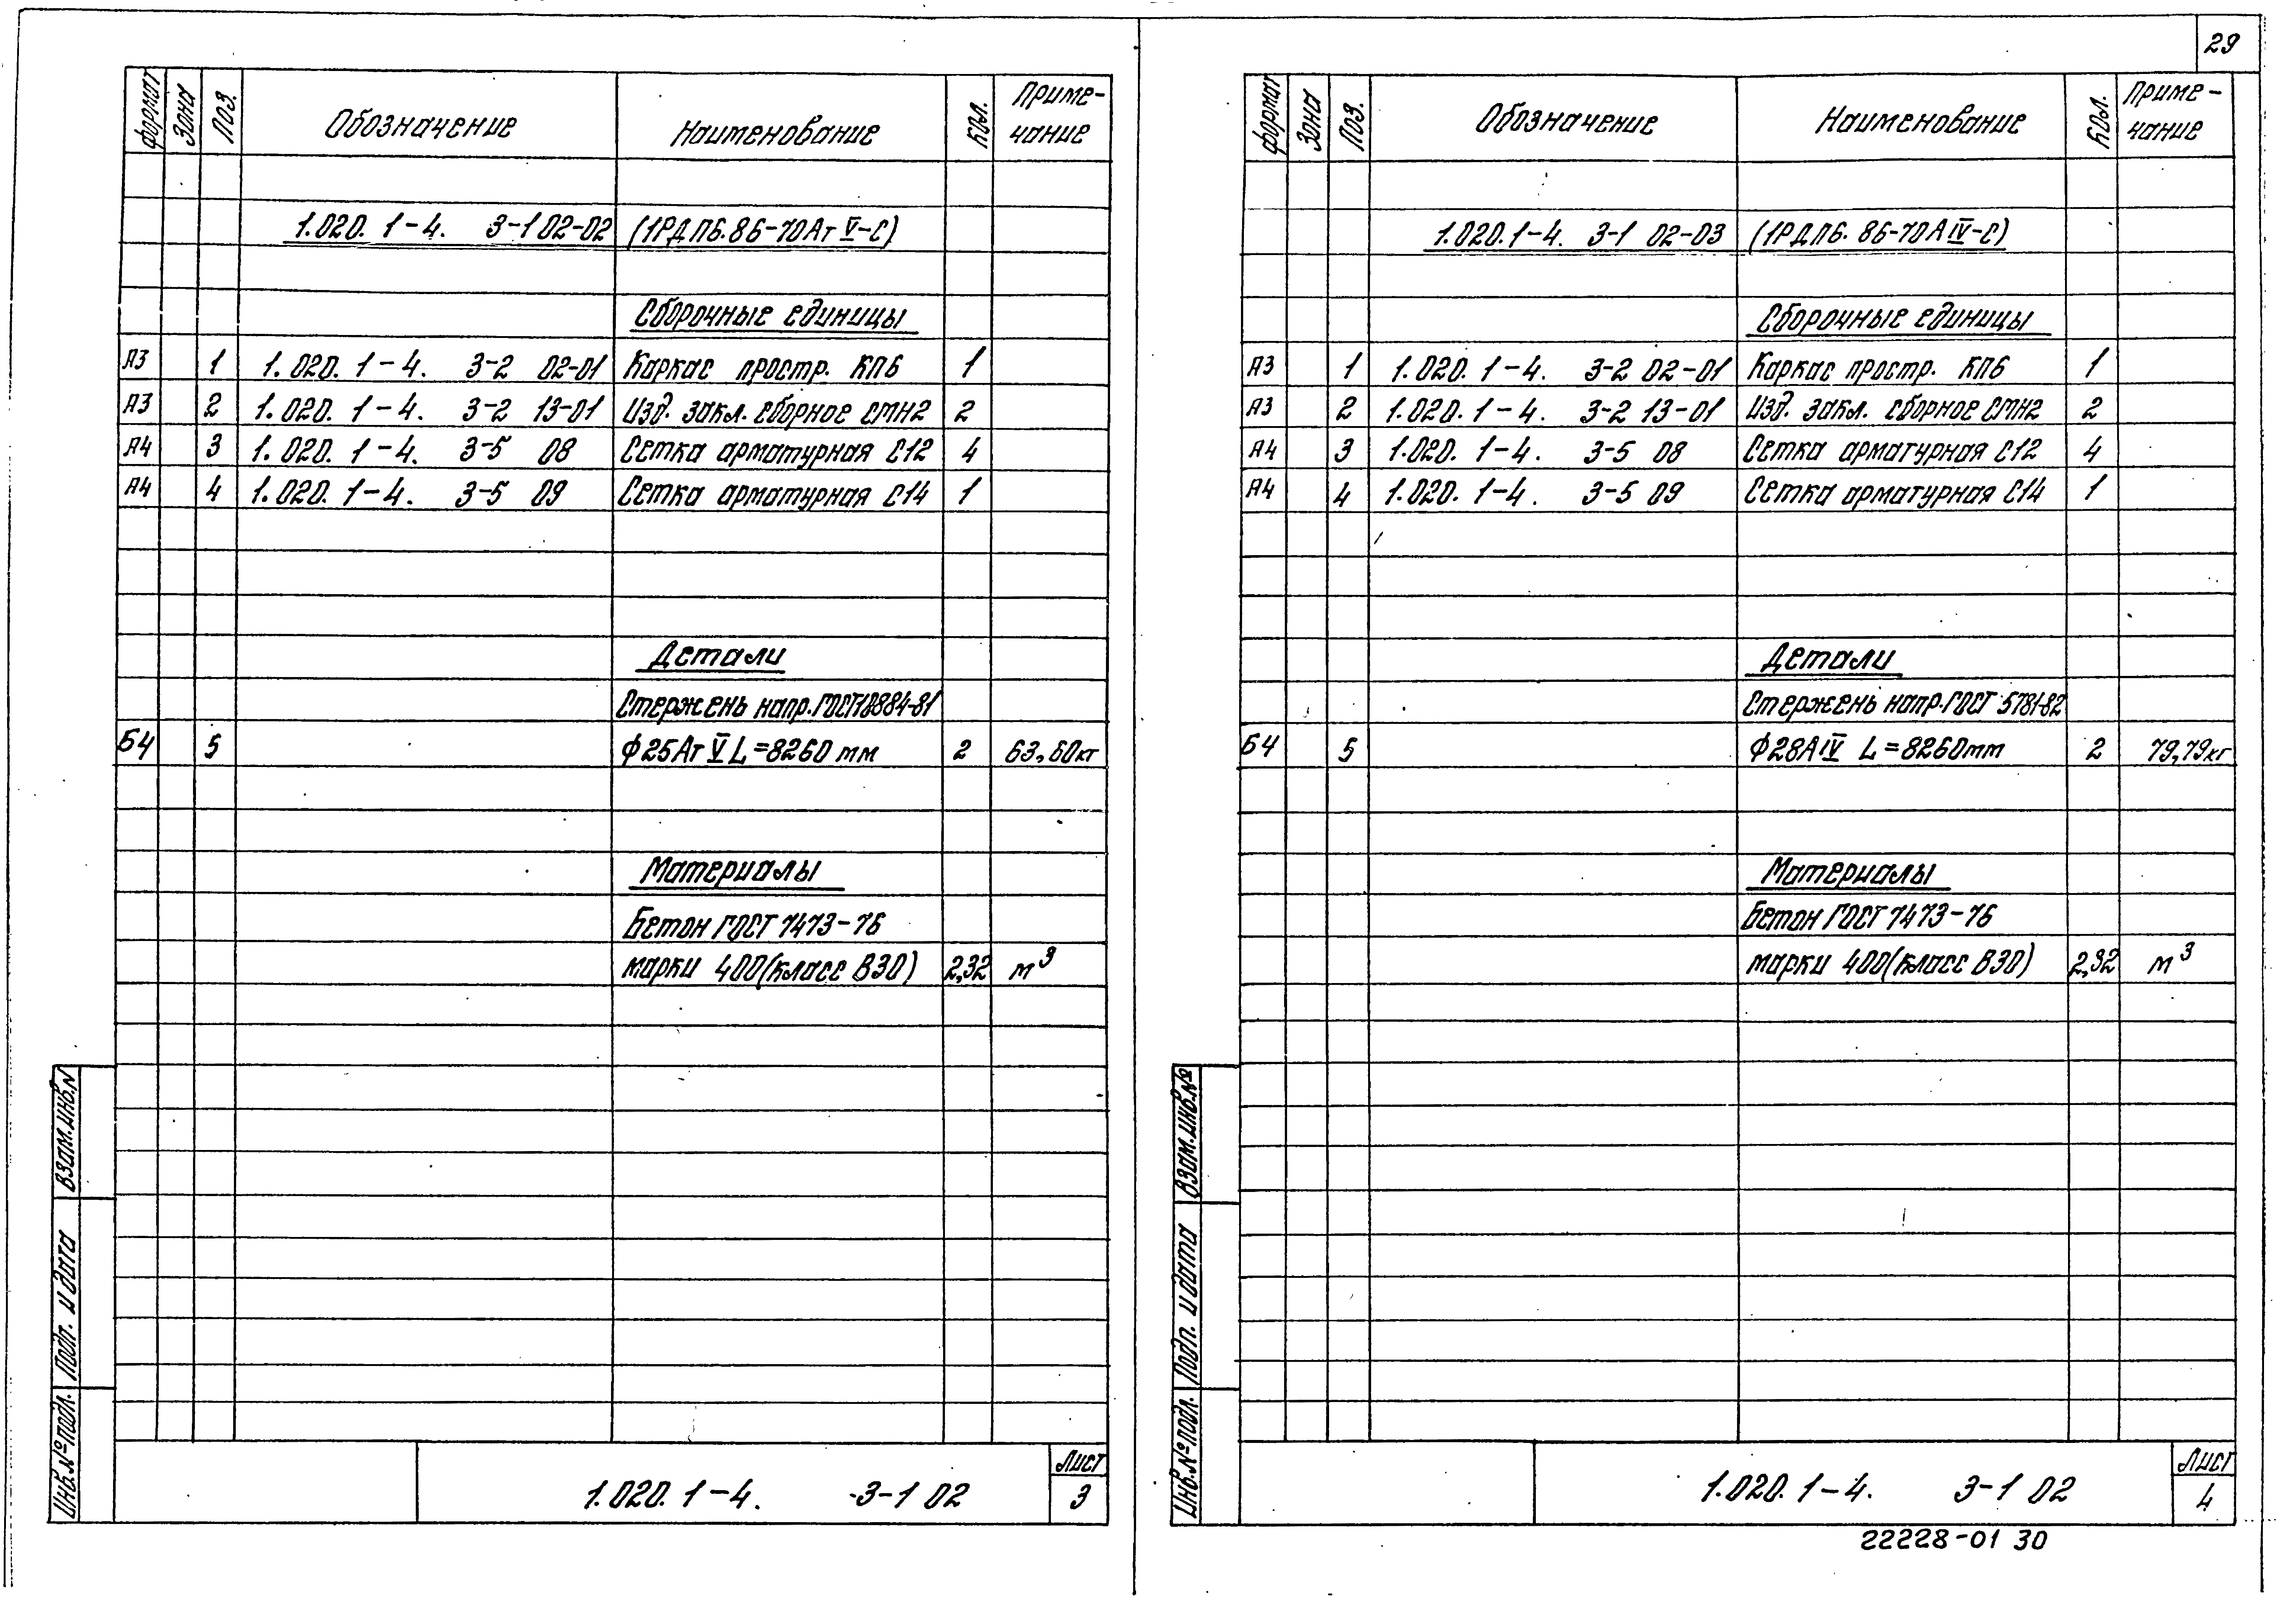 29
Формат Зона Поз. Обозначение Наименование Кол. Приме-
чание
1.020. 1-4. 3-1 02-02 (1РДП6.86-70АтV-С)
Сборочные единицы
А3 1 1.020. 1-4. 3-2 02-01 Каркас простр. КП6 1
А3 2 1.020. 1-4. 3-2 13-01 Изд. закл. сборное СМН2 2
А4 3 1.020. 1-4. 3-5 08 Сетка арматурная С12 4
А4 4 1.020. 1-4. 3-5 09 Сетка арматурная С14 1
Детали
Стержень напр. ГОСТ 10884-81
Б4 5 ф25АтV L=8260 мм 2 63,60кг
Материалы
Бетон ГОСТ 7473-76
марки 400(класс В30) 2,32 м³
Взам. инв. N
Подп. и дата
Инв. № подл.
1.020. 1-4. 3-1 02
Лист
3
Формат Зона Поз. Обозначение Наименование Кол. Приме-
чание
1.020. 1-4. 3-1 02-03 (1РДП6. 86-70АIV-С)
Сборочные единицы
А3 1 1.020. 1-4. 3-2 02-01 Каркас простр. КП6 1
А3 2 1.020. 1-4. 3-2 13-01 Изд. закл. сборное СМН2 2
А4 3 1.020. 1-4. 3-5 08 Сетка арматурная С12 4
А4 4 1.020. 1-4. 3-5 09 Сетка арматурная С14 1
Детали
Стержень напр. ГОСТ 5781-82
Б4 5 ф28АIV L=8260мм 2 79,79кг
Материалы
Бетон ГОСТ 7473-76
марки 400(класс В30) 2,32 м³
Взам. инв. №
Подп. и дата
Инв. № подл.
1.020. 1-4. 3-1 02
Лист
4
22228-01 30